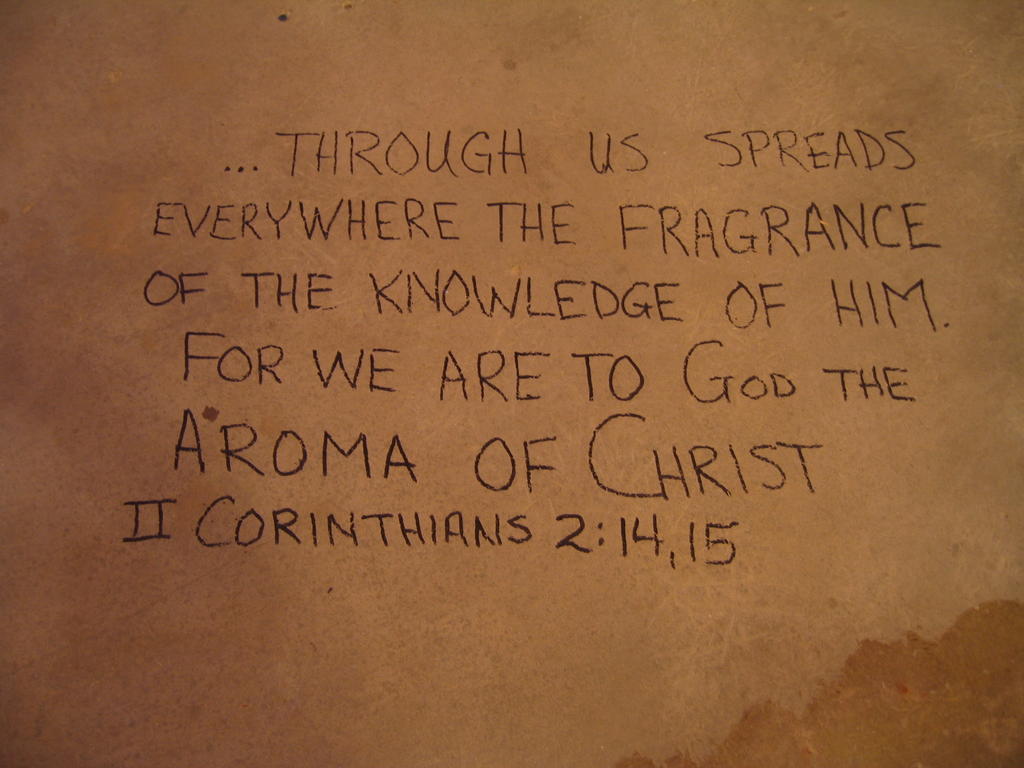 ...THROUGH US SPREADS
EVERYWHERE THE FRAGRANCE
OF THE KNOWLEDGE OF HIM.
FOR WE ARE TO GOD THE
AROMA OF CHRIST
II CORINTHIANS 2:14,15